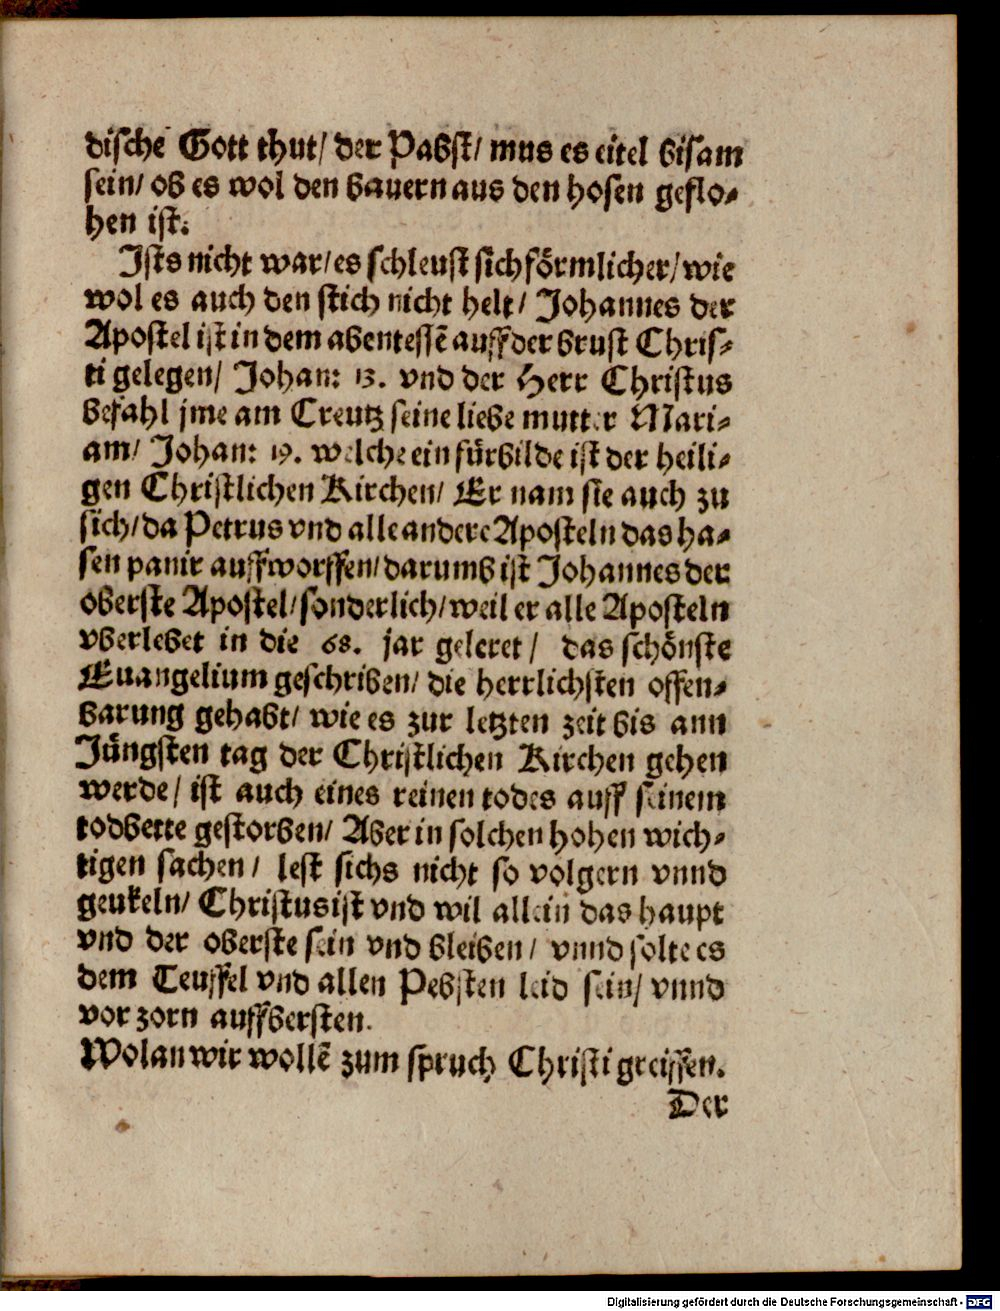 dische Gott thut/ der Pabst/ mus es eitel bisam
sein/ ob es wol den bauern aus den hosen geflo-
hen ist.
Ists nicht war/ es schleust sich förmlicher/ wie
wol es auch den stich nicht helt/ Johannes der
Apostel ist in dem abentessē auff der brust Chris-
ti gelegen/ Johan: 13. vnd der Herr Christus
befahl jme am Creutz seine liebe mutter Mari-
am/ Johan: 19. welche ein fürbilde ist der heili-
gen Christlichen Kirchen/ Er nam sie auch zu
sich/ da Petrus vnd alle andere Aposteln das ha-
sen panir auffworffen/ darumb ist Johannes der
oberste Apostel/ sonderlich/ weil er alle Aposteln
vberlebet in die 68. jar geleret/ das schönste
Euangelium geschriben/ die herrlichsten offen-
barung gehabt/ wie es zur letzten zeit bis ann
Jüngsten tag der Christlichen Kirchen gehen
werde/ ist auch eines reinen todes auff seinem
todbette gestorben/ Aber in solchen hohen wich-
tigen sachen/ lest sichs nicht so volgern vnnd
geukeln/ Christus ist vnd wil allein das haupt
vnd der oberste sein vnd bleiben/ vnnd solte es
dem Teuffel vnd allen Pebsten leid sein/ vnnd
vor zorn auffbersten.
Wolan wir wollē zum spruch Christi greiffen.
Der
Digitalisierung gefördert durch die Deutsche Forschungsgemeinschaft - DFG